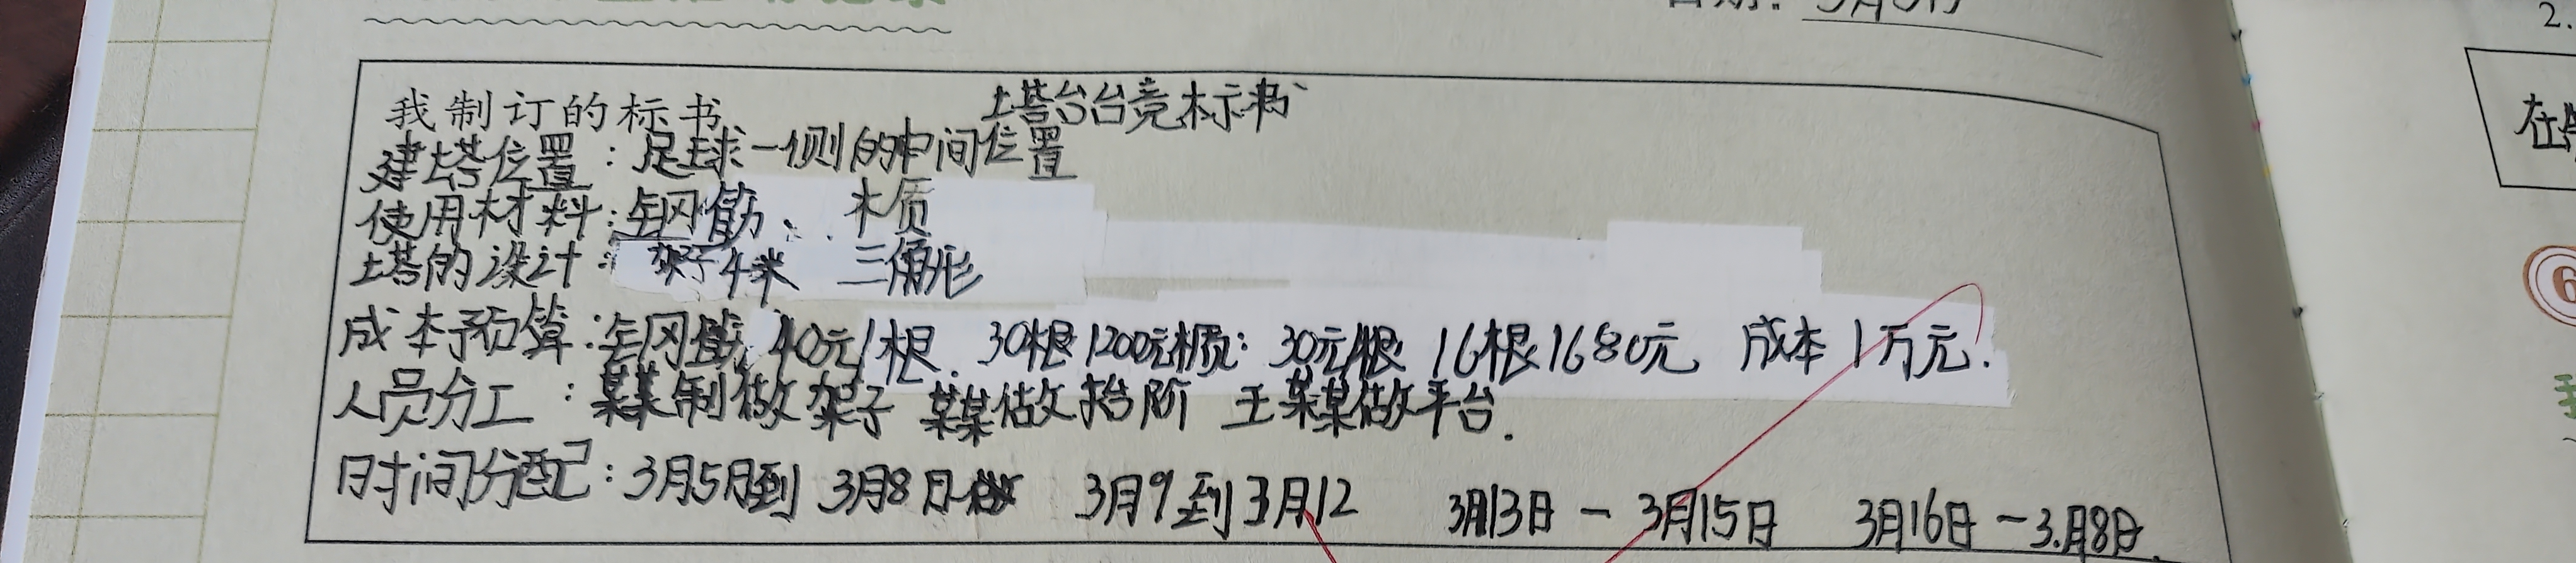 日期：3月5日
我制订的标书 塔台台竞标书
建塔位置：足球一侧的中间位置
使用材料：钢筋、木质
塔的设计：架子4米 三角形
成本预算：钢筋 40元/根. 30根1200元木质：30元/根 16根1680元 成本1万元.
人员分工：某某制做架子 某某做抬阶 王某某做平台.
时间分配：3月5日到3月8日做 3月9到3月12 3月13日－3月15日 3月16日－3.月8日.
2.
在
6